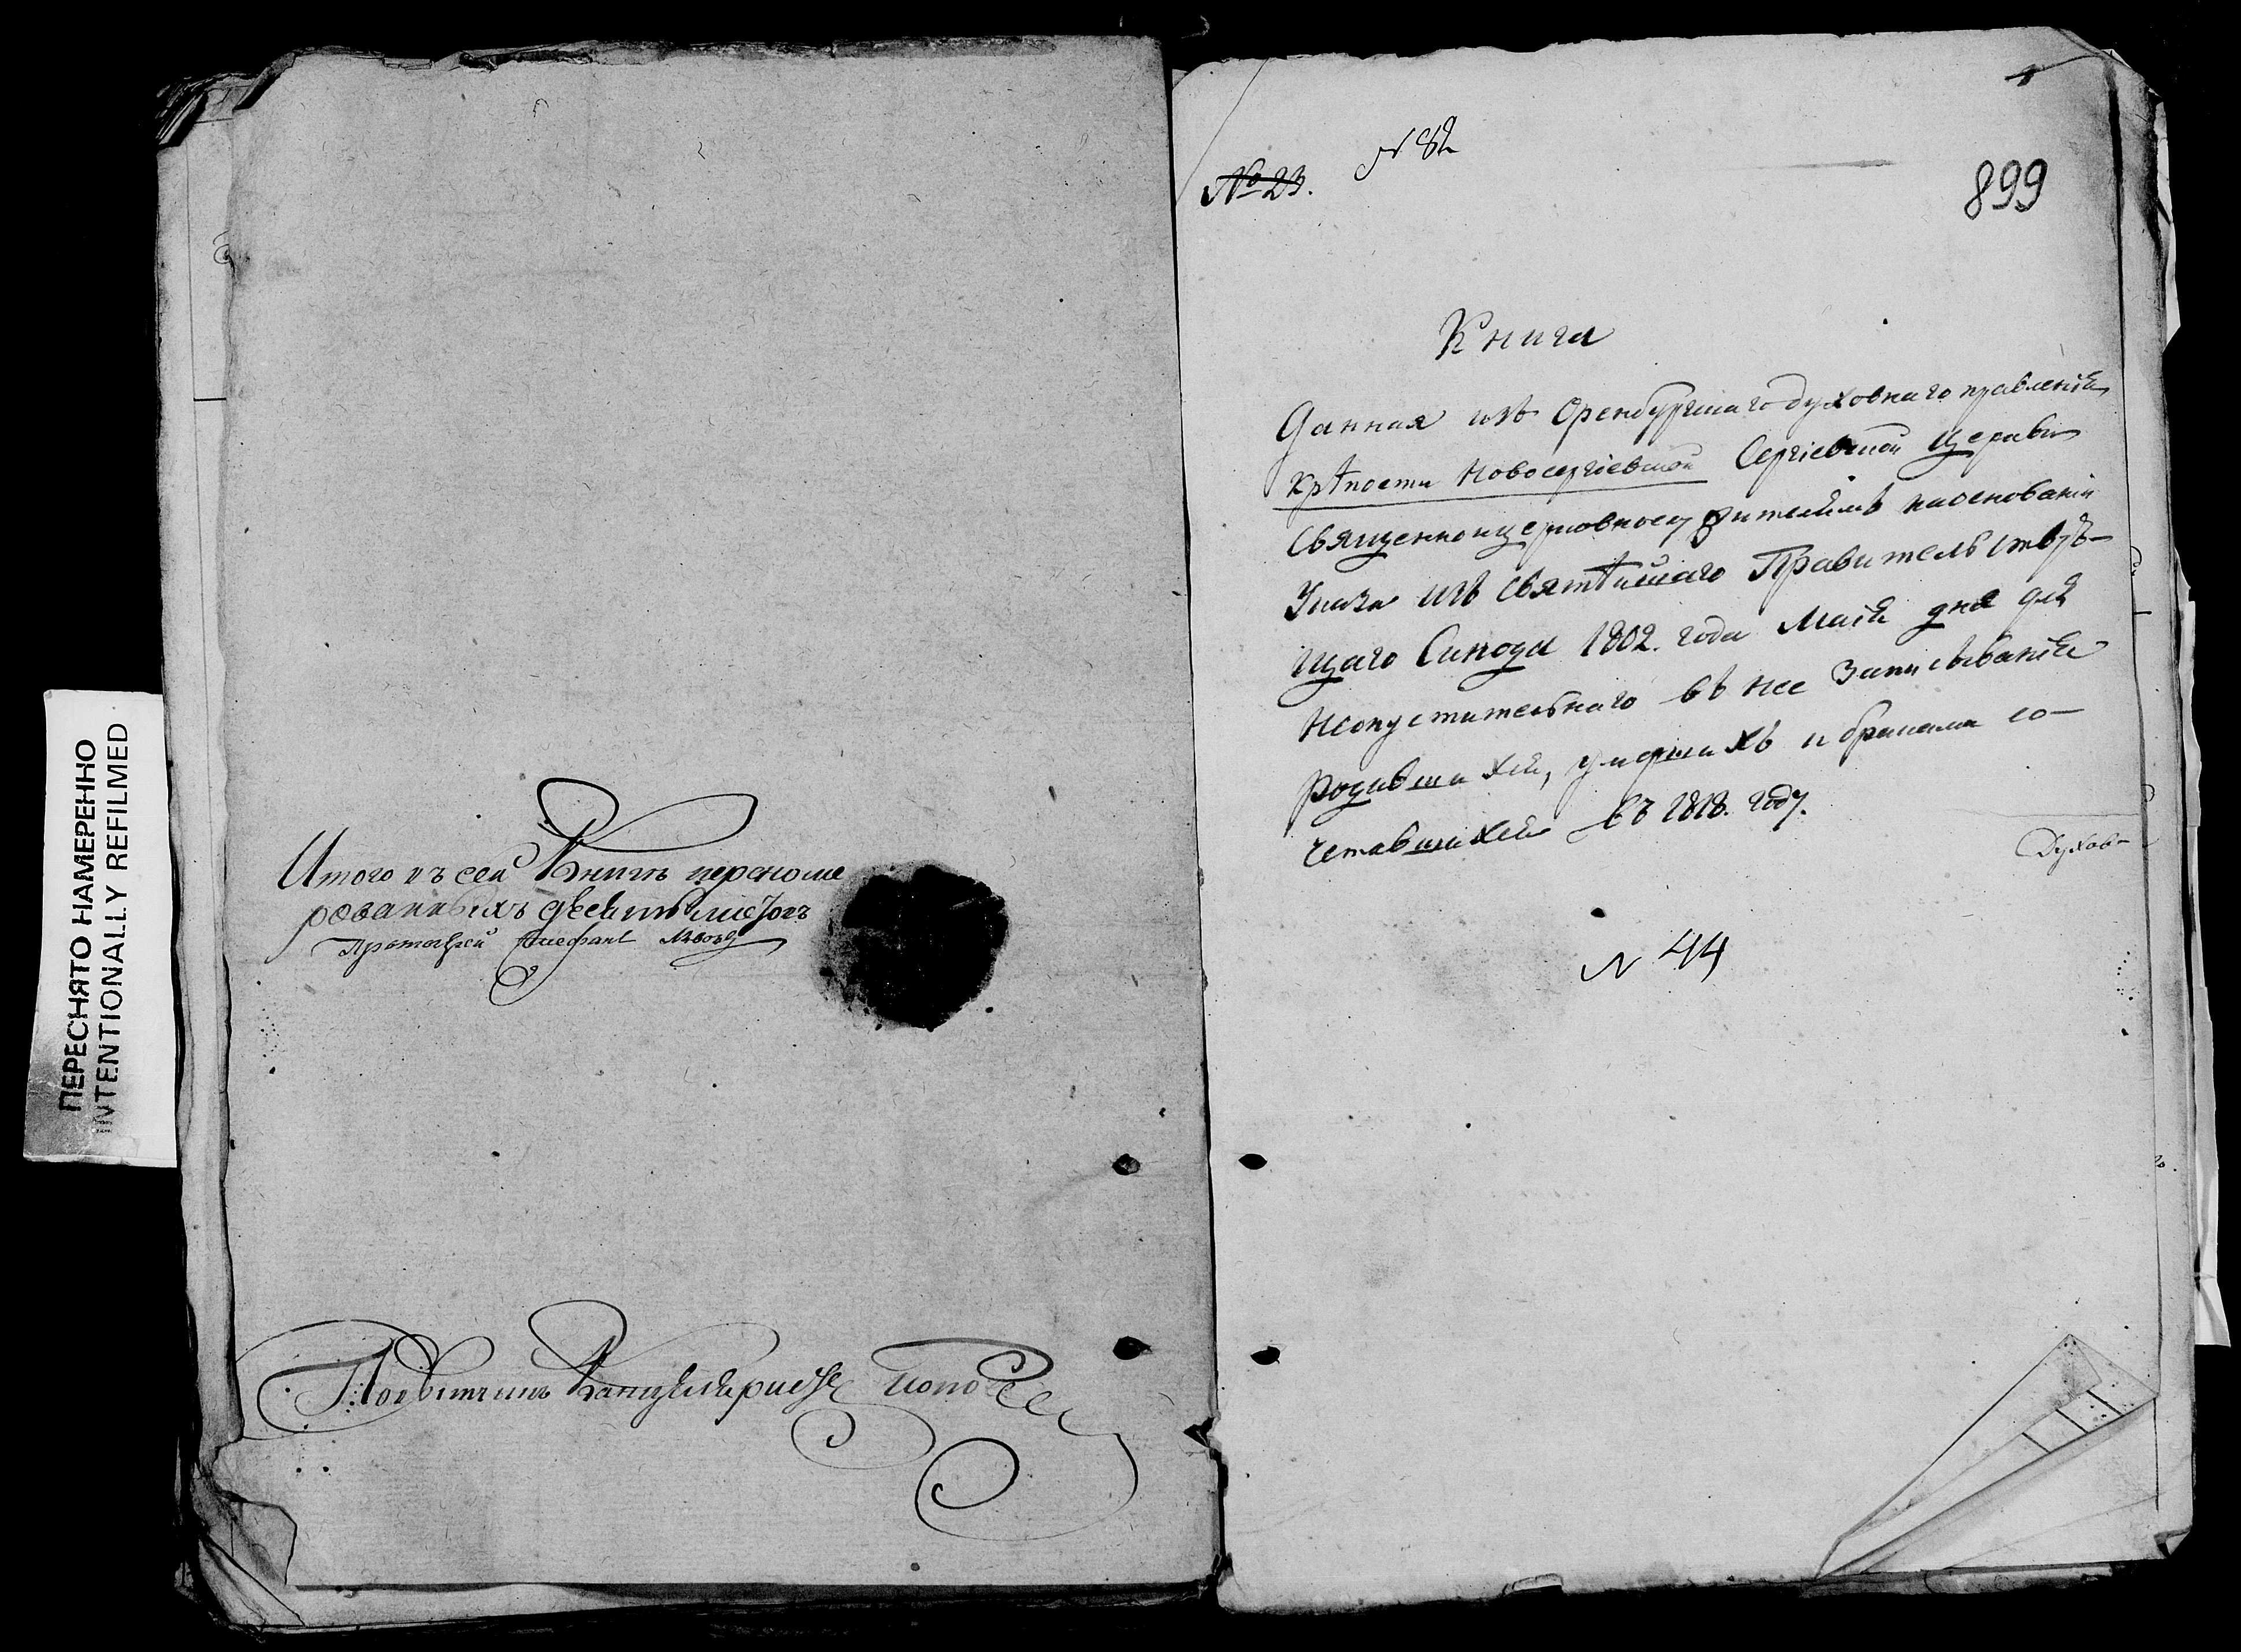 ПЕРЕСНЯТО НАМЕРЕННО
INTENTIONALLY REFILMED
Итого въ сей Книгѣ переноме
рованныхъ десять листовъ
Протоіерей
Повытчикъ Канцеляристъ Поповъ
№ 23.
N 82
899
Книга
Данная изъ Оренбургскаго духовнаго правленія
крѣпости Новосергіевской Сергіевской Церкви
Священноцерковнослужителямъ на основаніи
Указа изъ Святѣйшаго Правительствую-
щаго Синода 1802. года Маія дня для
Неопустительнаго въ нее записыванія
родившихся, умершихъ и браками со-
четавшихся въ 1818. году.
Духов-
N 44